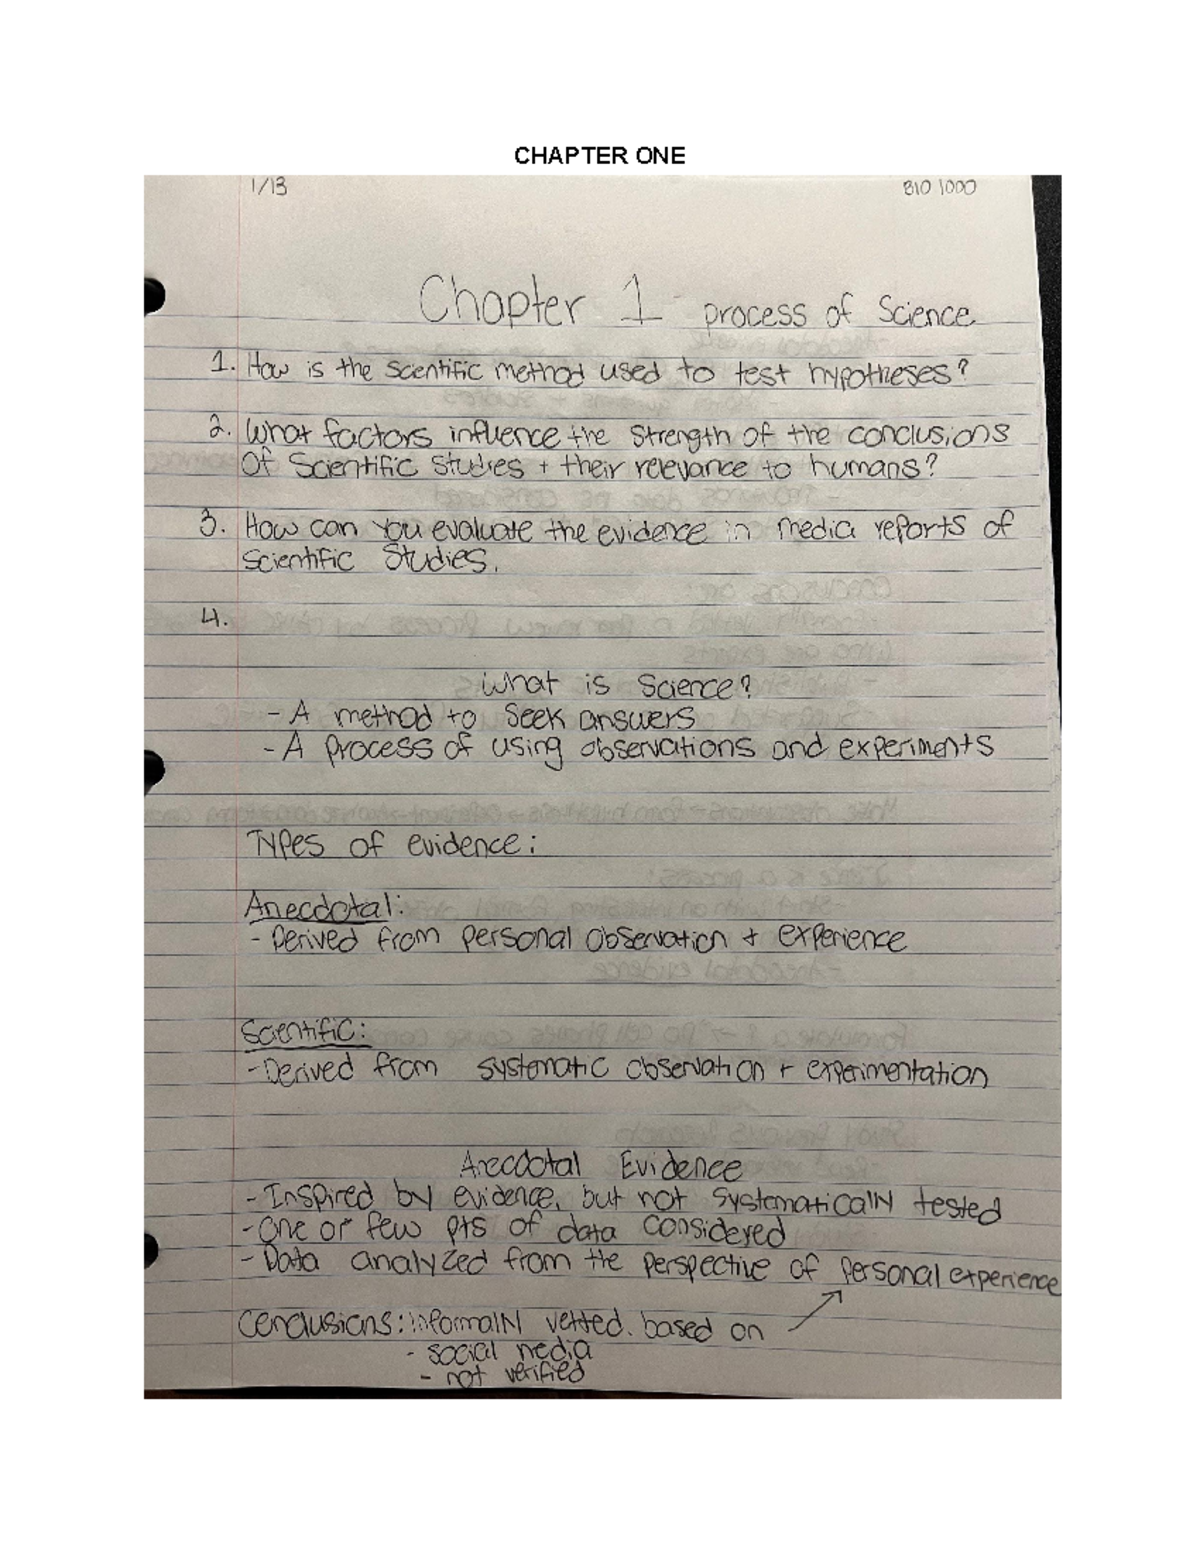 CHAPTER ONE
1/13 BIO 1000
Chapter 1 - process of Science
1. How is the scientific method used to test hypotheses?
2. What factors influence the strength of the conclusions
of Scientific Studies + their relevance to humans?
3. How can you evaluate the evidence in media reports of
Scientific Studies.
4.
What is Science?
- A method to seek answers
- A process of using observations and experiments
Types of evidence:
Anecdotal:
- Derived from personal observation + experience
Scientific:
- Derived from systematic observation + experimentation
Anecdotal Evidence
- Inspired by evidence, but not systematically tested
- One or few pts of data considered
- Data analyzed from the perspective of personal experience
Conclusions: informally vetted. based on
- social media
- not verified